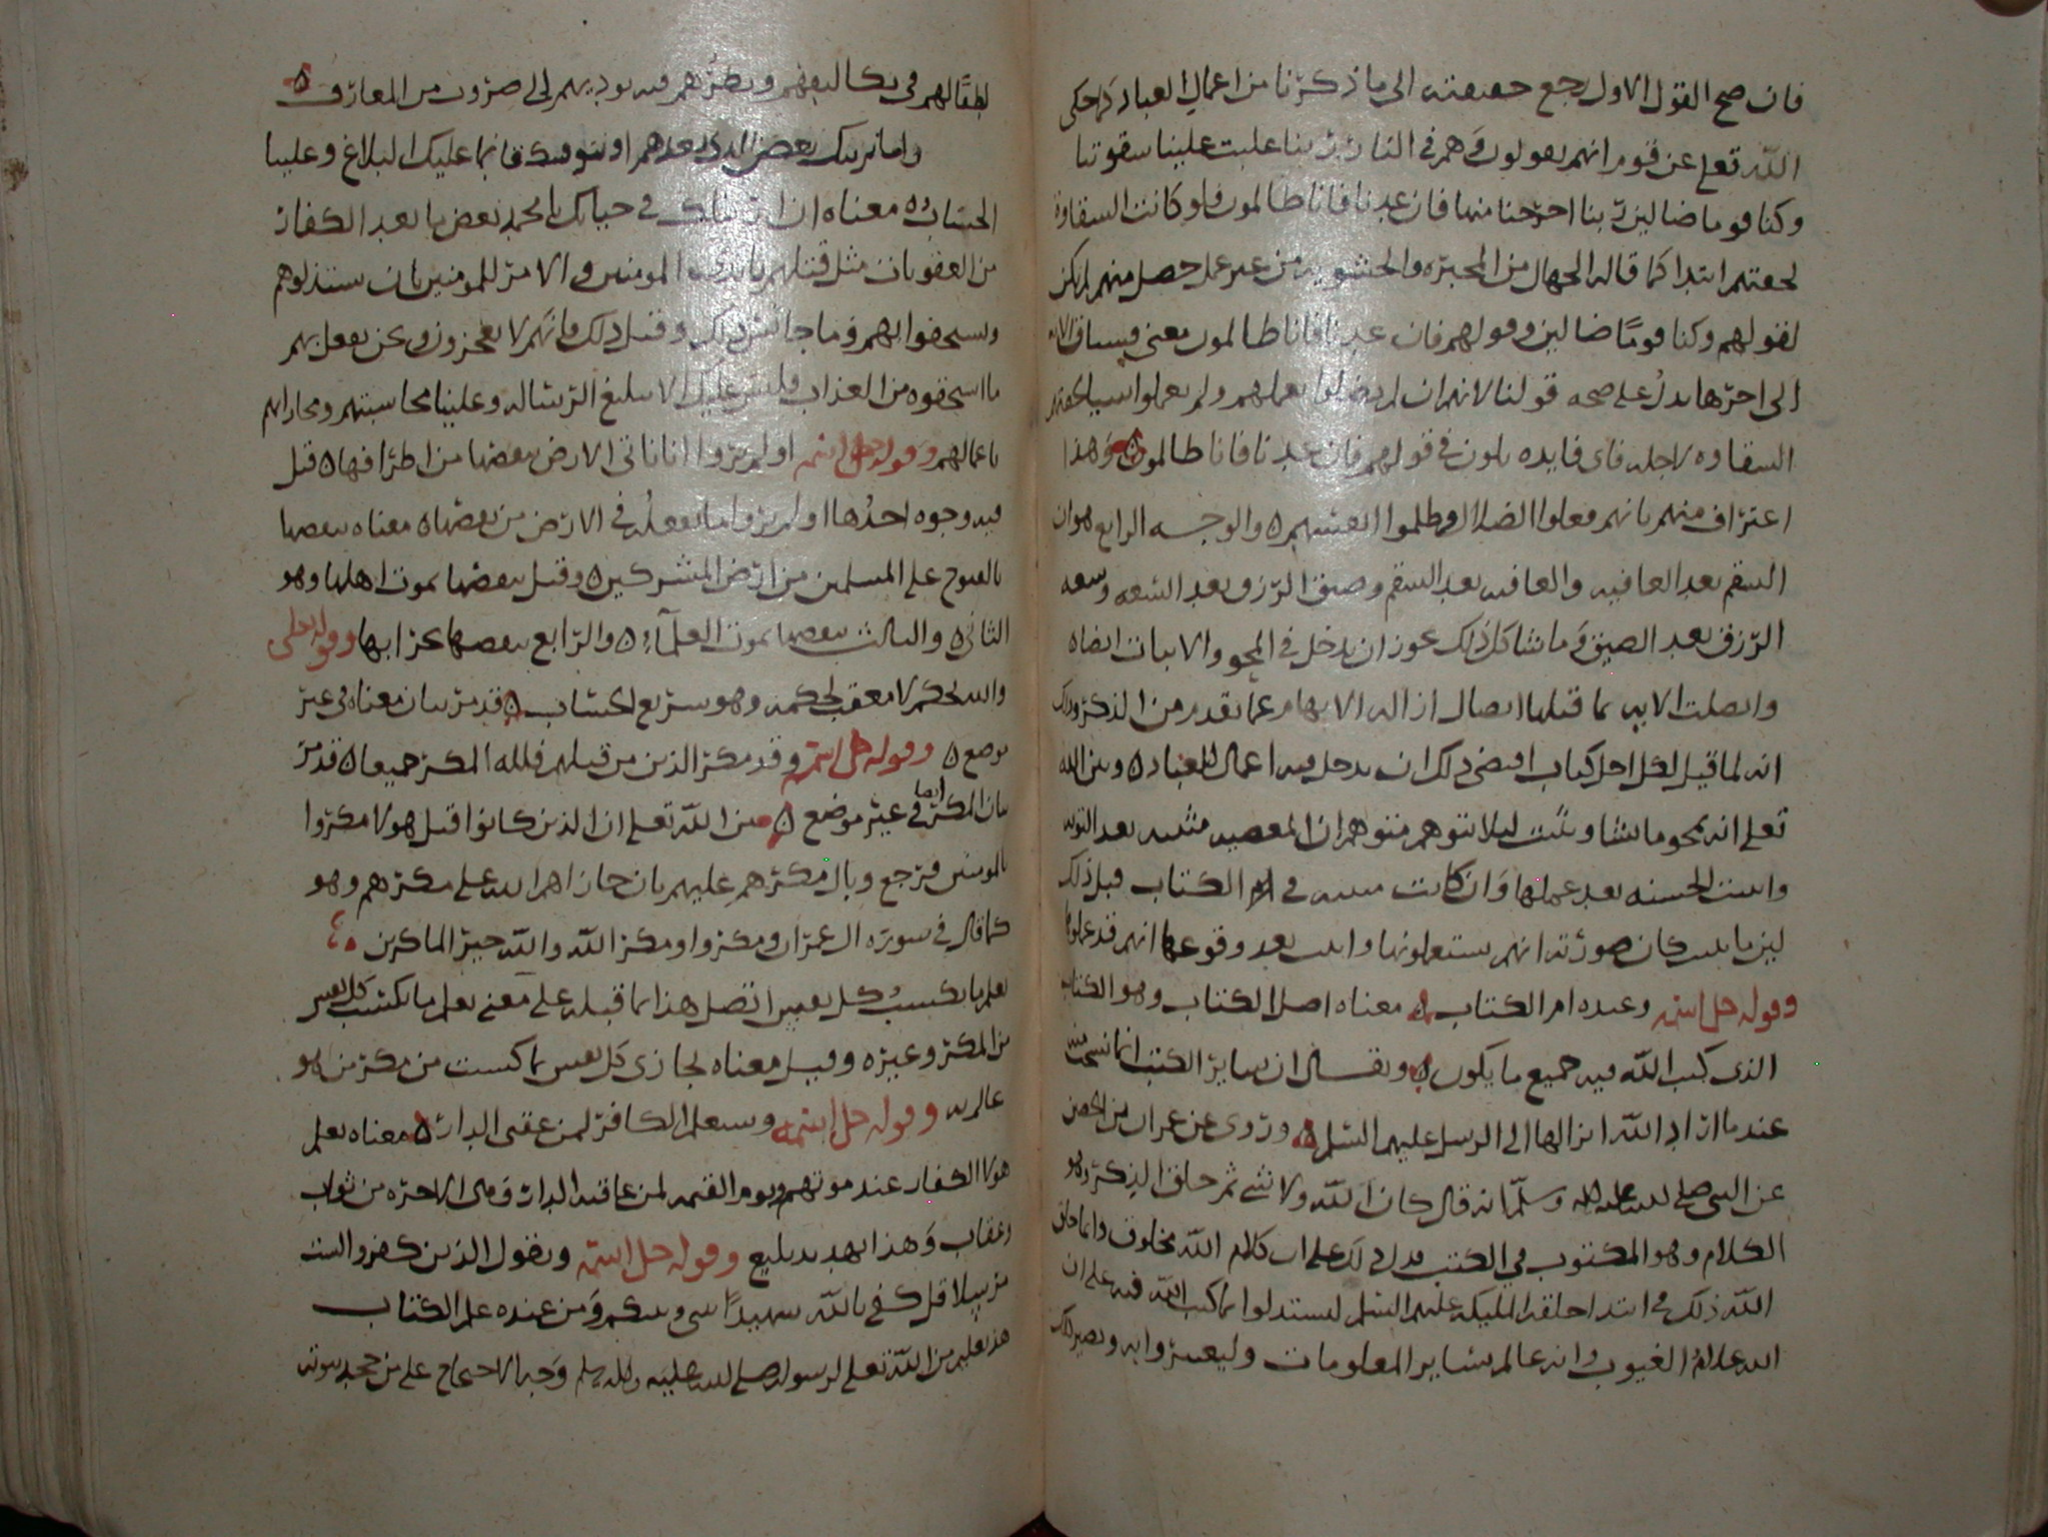 فان صح القول الاول رجع حقيقته الى ما ذكرنا من اعمال العباد كما حكى
الله تعلى عن قوم انهم يقولون وهم في النار ربنا غلبت علينا شقوتنا
وكنا قوما ضالين ربنا اخرجنا منها فان عدنا فانا ظالمون فلو كانت الشقاوة
لحقتهم ابتدا كما قاله الجهال من المجبره والحشويه من غير عمل حصل منهم لم يكن
لقولهم وكنا قوما ضالين وقولهم فان عدنا فانا ظالمون معنى فسياق الايه
الى اخرها يدل على صحه قولنا لانهم ان لم يضلوا بعملهم ولم يعملوا سيا لحقتهم
الشقاوه لاجله فاى فايده تكون في قولهم فان عدنا فانا ظالمون وهذا
اعتراف منهم بانهم فعلوا الضلال وظلموا انفسهم ه والوجه الرابع هو ان
السقم بعد العافيه والعافيه بعد السقم وضيق الرزق بعد السعه وسعه
الرزق بعد الضيق وما شاكل ذلك يجوز ان يدخل في المحو والاثبات ايضا ه
واتصلت الايه بما قبلها اتصال ازاله الابهام عما تقدم من الذكر وذلك
انه لما قيل لكل اجل كتاب اقتضى ذلك ان يدخل فيه اعمال العباد ه وبين الله
تعلى انه يمحو ما يشا ويثبت ليلا يتوهم متوهم ان المعصيه مثبته بعد التوبه
واثبت الحسنه بعد عملها وان كانت مثبته في ام الكتاب قبل ذلك
لين ما يثبت كان صورته انهم سيعملونها واثبت بعد وقوعها انهم قد عملوها
وقوله جل اسمه وعنده ام الكتاب ه معناه اصل الكتاب وهو الكتاب
الذى كتب الله فيه جميع ما يكون ه ويقال ان ساير الكتب انما نسخت منه
عند ما اراد الله انزالها الى الرسل عليهم السلم ه وروى عن عمران بن الحصين
عن النبي صلى الله عليه وسلم انه قال كان الله ولا شي ثم خلق الذكر وهو
الكلام وهو المكتوب في الكتب فدل ذلك على ان كلام الله مخلوق وانما خلق
الله ذلك في ابتدا خلقه الملايكه عليهم السلم ليستدلوا بما كتب الله فيه على ان
الله علام الغيوب وانه عالم بساير المعلومات وليعتبروا به ويصير ذلك
لطفا لهم في تكاليفهم ونظرهم فيه يوديهم الى ضروب من المعارف ه
واما نرينك بعض الذي نعدهم او نتوفينك فانما عليك البلاغ وعلينا
الحساب ه معناه ان اريناك في حياتك يا محمد بعض ما نعد الكفار
من العقوبات مثل قتلهم بايدى المومنين والامر للمومنين بان يستذلوهم
ويستخفوا بهم وما جانس ذلك وقبل ذلك فانهم لا يعجزون ونحن نفعل بهم
ما استحقوه من العذاب فليس عليك الا تبليغ الرساله وعلينا محاسبتهم ومجازاتهم
باعمالهم وقوله جل اسمه اولم يروا انا ناتى الارض ننقصها من اطرافها ه قيل
فيه وجوه احدها اولم يروا ما نفعله في الارض من نقصها ه معناه ننقصها
بالفتوح على المسلمين من ارض المشركين ه وقيل ننقصها بموت اهلها وهو
الثانى ه والثالث ننقصها بموت العلمآء ه والرابع ننقصها بخرابها وقوله تعلى
والله يحكم لا معقب لحكمه وهو سريع الحساب ه قد مر بيان معناه في غير
موضع ه وقوله جل اسمه وقد مكر الذين من قبلهم فلله المكر جميعا ه قد مر
بيان المكر ايضا في غير موضع ه بين الله تعلى ان الذين كانوا قبل هولا مكروا
بالمومنين فرجع وبال مكرهم عليهم بان جازاهم الله على مكرهم وهو
كما قال في سوره ال عمران ومكروا ومكر الله والله خير الماكرين
يعلم ما تكسب كل نفس اتصل هذا بما قبله على معنى يعلم ما تكسب كل نفس
من المكر وغيره وقيل معناه يجازى كل نفس بما كسبت من مكر من هو
عالم به وقوله جل اسمه وسيعلم الكافر لمن عقبى الدار ه معناه يعلم
هولا الكفار عند موتهم ويوم القيمه لمن عاقبه الدار في الاخره من ثواب
وعقاب وهذا تهديد بليغ وقوله جل اسمه ويقول الذين كفروا لست
مرسلا قل كفى بالله شهيدا بيني وبينكم ومن عنده علم الكتاب
هذا تعليم من الله تعلى لرسوله صلى الله عليه وآله وسلم وجه الاحتجاج على من جحد نبوته